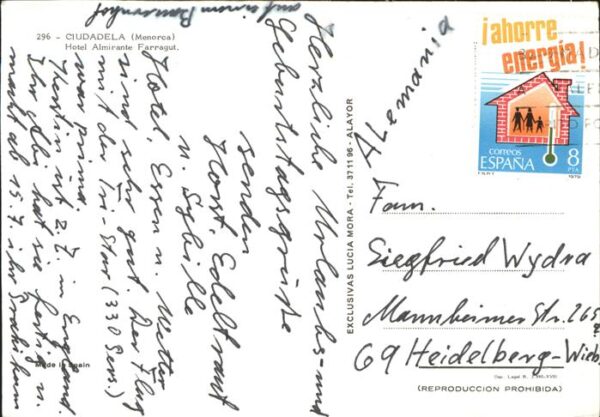 296 - CIUDADELA (Menorca)
Hotel Almirante Farragut.
Herzliche Urlaubs- und
Geburtstagsgrüße
senden
Horst Edeltraut
u. Sybille
Hotel, Essen u. Wetter
sind sehr gut. Der Flug
mit der Tri-Star (330 Pers.)
war prima.
Kerstin ist z. Z. in England.
Ihr Abi hat sie fertig u.
macht ab 15.7 ihr Praktikum
auf einem Bauernhof
Made in Spain
EXCLUSIVAS LUCIA MORA - Tel. 37 11 96 - ALAYOR
¡ahorre
energía!
correos
ESPAÑA
8
PTA
1979
Alemania
Fam.
Siegfried Wydra
Mannheimer Str. 265
69 Heidelberg-Wieb
Dep. Legal B.
(REPRODUCCION PROHIBIDA)